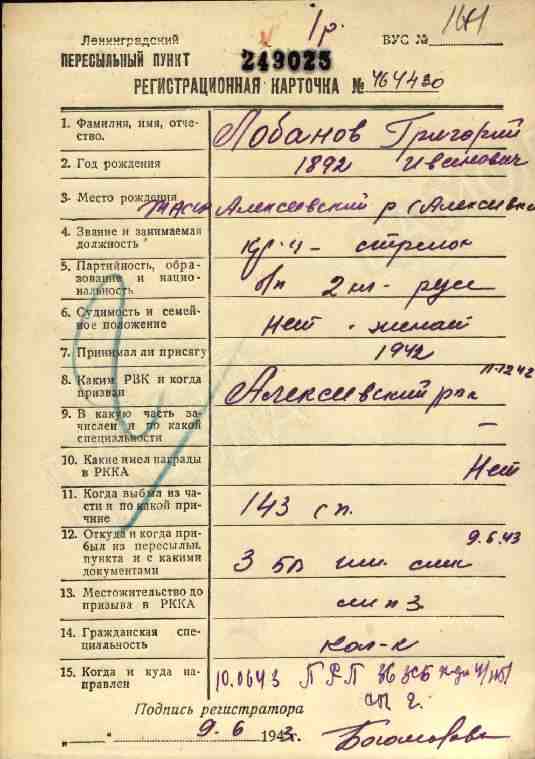 1р.
Ленинградский
ВУС №
ПЕРЕСЫЛЬНЫЙ ПУНКТ
249025
РЕГИСТРАЦИОННАЯ КАРТОЧКА № 464430
1. Фамилия, имя, отчество. Лобанов Григорий
2. Год рождения 1892 Иванович
3. Место рождения ТАССР Алексеевский р (Алексеевка
4. Звание и занимаемая должность кр-ц - стрелок
5. Партийность, образование и национальность бп 2 кл - рус
6. Судимость и семейное положение нет - женат
7. Принимал ли присягу 1942
8. Каким РВК и когда призван Алексеевский рвк
9. В какую часть зачислен и по какой специальности —
10. Какие имел награды в РККА Нет
11. Когда выбыл из части и по какой причине 143 сп.
12. Откуда и когда прибыл из пересыльн. пункта и с какими документами 9.6.43
3 бп
13. Местожительство до призыва в РККА см п 3
14. Гражданская специальность кол-к
15. Когда и куда направлен 10.0643 ПРП
сп г.
Подпись регистратора
„ 9.6 “ 1943г.